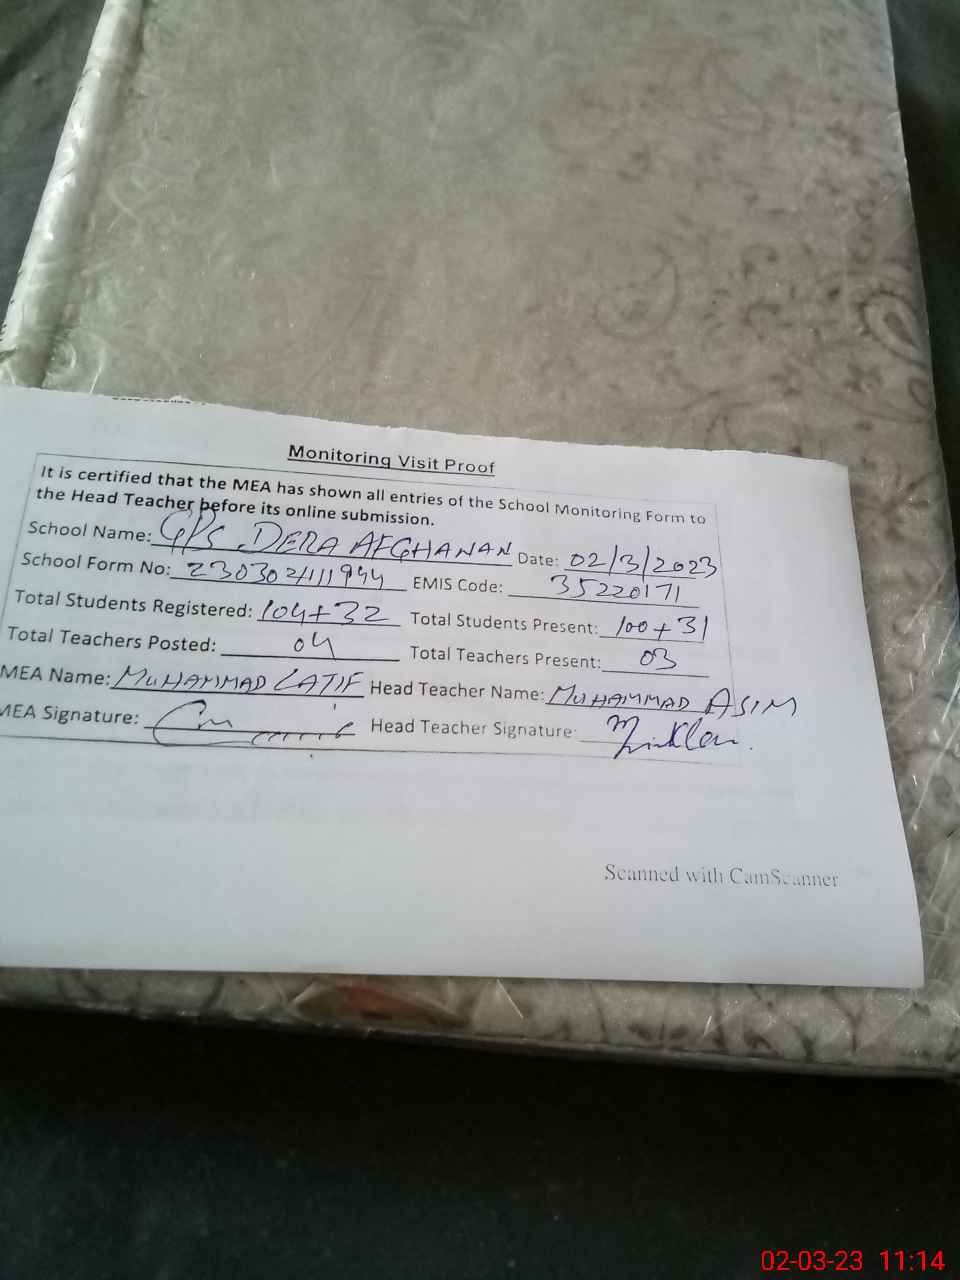 Monitoring Visit Proof
It is certified that the MEA has shown all entries of the School Monitoring Form to
the Head Teacher before its online submission.
School Name: GPS DERA AFGHANAN Date: 02/3/2023
School Form No: 230302111944 EMIS Code: 35220171
Total Students Registered: 104+32 Total Students Present: 100+31
Total Teachers Posted: 04 Total Teachers Present: 03
MEA Name: MUHAMMAD LATIF Head Teacher Name: MUHAMMAD ASIM
MEA Signature: Head Teacher Signature:
Scanned with CamScanner
02-03-23 11:14